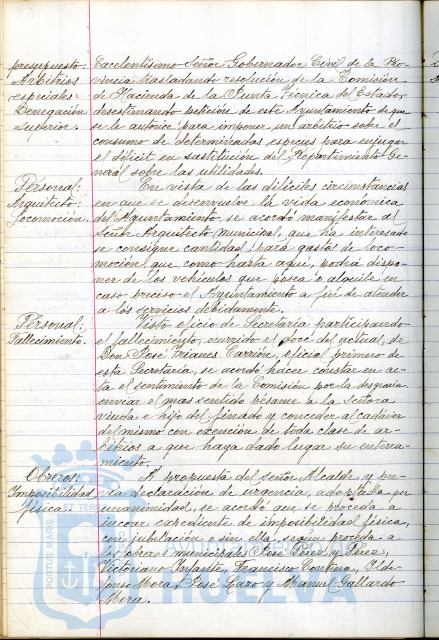 presupuesto:
Arbitrios
especiales:
Denegación
superior.
Excelentísimo Señor Gobernador Civil de la Pro-
vincia trasladando resolución de la Comisión
de Hacienda de la Junta Técnica del Estado,
desestimando petición de este Ayuntamiento de que
se le autorice para imponer un arbitrio sobre el
consumo de determinadas especies para enjugar
el déficit en sustitución del Repartimiento Ge-
neral sobre las utilidades.
Personal:
Arquitecto:
Locomoción.
En vista de las difíciles circunstancias
en que se desenvuelve la vida económica
del Ayuntamiento, se acordó manifestar al
Señor Arquitecto municipal, que ha interesado
se consigne cantidad para gastos de loco-
moción, que como hasta aquí, podrá dispo-
ner de los vehículos que posea o alquile en
caso preciso el Ayuntamiento a fin de atender
a los servicios debidamente.
Personal:
Fallecimiento.
Visto oficio de Secretaría participando
el fallecimiento, ocurrido el doce del actual, de
Don José Trianes Carrión, oficial primero de
esta Secretaría, se acordó hacer constar en ac-
ta el sentimiento de la Comisión por la desgracia,
enviar el más sentido pésame a la señora
viuda e hijo del finado y conceder al cadáver
del mismo con exención de toda clase de ar-
bitrios a que haya dado lugar su enterra-
miento.
Obreros:
Imposibilidad
física.
A propuesta del señor Alcalde y pre-
via declaración de urgencia, adoptada por
unanimidad, se acordó que se proceda a
incoar expediente de imposibilidad física,
con jubilación o sin ella, según proceda a
los obreros municipales José Pérez y Pérez,
Victoriano Infante, Francisco Contioso, Ilde-
fonso Mora, José Lazo y Manuel Gallardo
Mora.
PORTUS MARIS
HUELVA